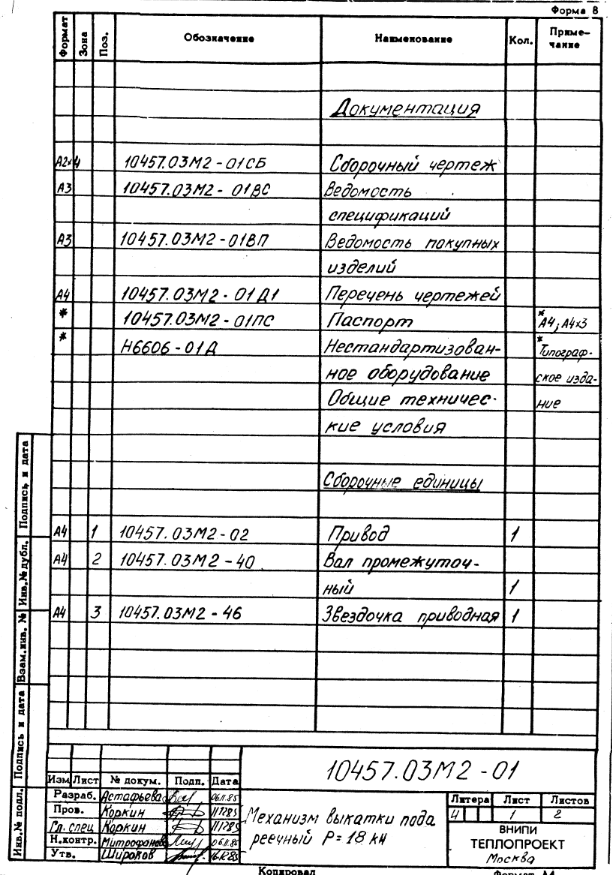 Форма 8
Формат Зона Поз. Обозначение Наименование Кол. Приме-
чание
Документация
А2х4 10457.03М2-01СБ Сборочный чертеж
А3 10457.03М2-01ВС Ведомость
спецификаций
А3 10457.03М2-01ВП Ведомость покупных
изделий
А4 10457.03М2-01Д1 Перечень чертежей
* 10457.03М2-01ПС Паспорт * А4; А4х3
* Н6606-01Д Нестандартизован- * Типограф-
ное оборудование ское изда-
Общие техничес- ние
кие условия
Сборочные единицы
А4 1 10457.03М2-02 Привод 1
А4 2 10457.03М2-40 Вал промежуточ-
ный 1
А4 3 10457.03М2-46 Звездочка приводная 1
Инв.№ подл. Подпись и дата Взам.инв. № Инв.№ дубл. Подпись и дата
10457.03М2-01
Изм Лист № докум. Подп. Дата
Разраб. Астафьева 06.11.85
Пров. Коркин
Гл. спец Коркин
Н.контр. Митрофанова
Утв. Широков
Механизм выкатки пода
реечный Р=18 кН
Литера Лист Листов
И 1 2
ВНИПИ
ТЕПЛОПРОЕКТ
Москва
Копировал Формат А4